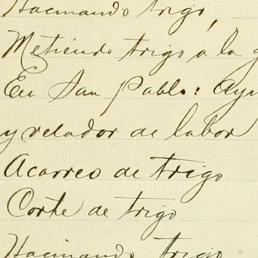 Hacinando trigo,
Metiendo trigo a la
En San Pablo: Ayu
y velador de labor
Acarreo de trigo
Corte de trigo
Hacinando trigo